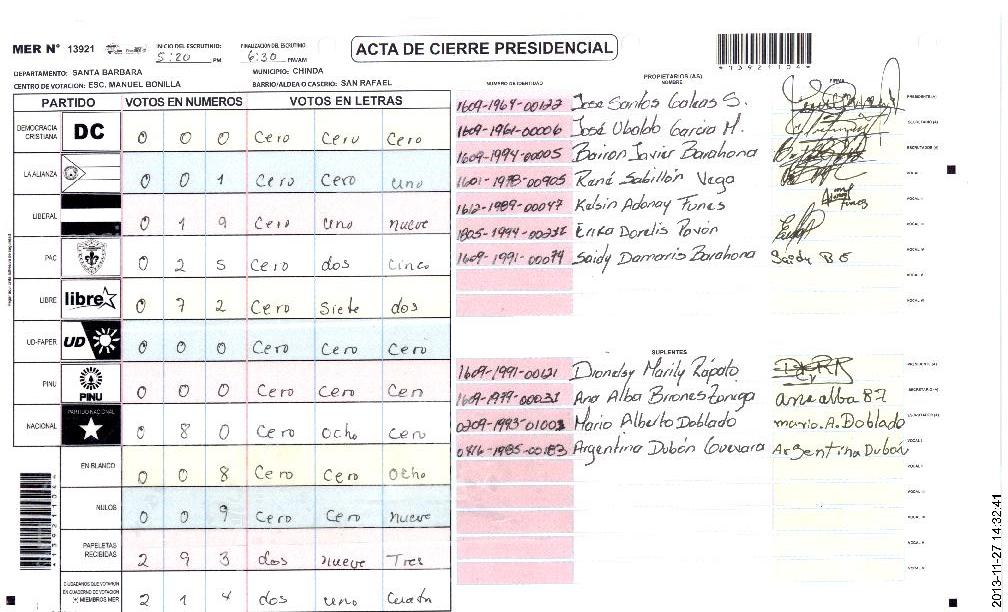 MER N° 13921
INICIO DEL ESCRUTINIO: 5:20 PM
FINALIZACION DEL ESCRUTINIO: 6:30 PM/AM
ACTA DE CIERRE PRESIDENCIAL
*13921104*
DEPARTAMENTO: SANTA BARBARA
MUNICIPIO: CHINDA
CENTRO DE VOTACION: ESC. MANUEL BONILLA
BARRIO/ALDEA O CASERIO: SAN RAFAEL
PARTIDO VOTOS EN NUMEROS VOTOS EN LETRAS
DEMOCRACIA CRISTIANA DC 0 0 0 Cero Cero Cero
LA ALIANZA 0 0 1 Cero Cero uno
LIBERAL 0 1 9 Cero uno nueve
PAC 0 2 5 Cero dos Cinco
LIBRE libre 0 7 2 Cero Siete dos
UD-FAPER UD 0 0 0 Cero Cero Cero
PINU PINU 0 0 0 Cero Cero Cero
NACIONAL PARTIDO NACIONAL 0 8 0 Cero Ocho cero
EN BLANCO 0 0 8 Cero Cero Ocho
NULOS 0 0 9 Cero Cero nueve
PAPELETAS RECIBIDAS 2 9 3 dos nueve Tres
CIUDADANOS QUE VOTARON EN CUADERNO DE VOTACION (+) MIEMBROS MER 2 1 4 dos uno Cuatro
NUMERO DE IDENTIDAD PROPIETARIOS (AS) NOMBRE FIRMA
1609-1964-00122 Jose Santos Galeas S. PRESIDENTE (A)
1609-1961-00006 José Ubaldo Garcia M. SECRETARIO (A)
1609-1994-00005 Bairon Javier Barahona ESCRUTADOR (A)
1601-1978-00905 René Sabillón Vega VOCAL I
1612-1989-00047 Kelsin Adonay Funes Adonay Funes VOCAL II
1805-1994-00232 Erika Dorelis Pavón VOCAL III
1609-1991-00074 Saidy Damaris Barahona Saidy B E VOCAL IV
VOCAL V
VOCAL VI
SUPLENTES
1609-1991-00121 Dionelsy Marily Rápalo PRESIDENTE (A)
1609-1979-00031 Ana Alba Briones Zuniga ana alba 87 SECRETARIO (A)
0209-1993-01001 Mario Alberto Doblado mario. A. Doblado ESCRUTADOR (A)
0416-1985-00183 Argentina Dubón Guevara Argentina Dubón VOCAL I
VOCAL II
VOCAL III
VOCAL IV
VOCAL V
VOCAL VI
2013-11-27 14:32:41